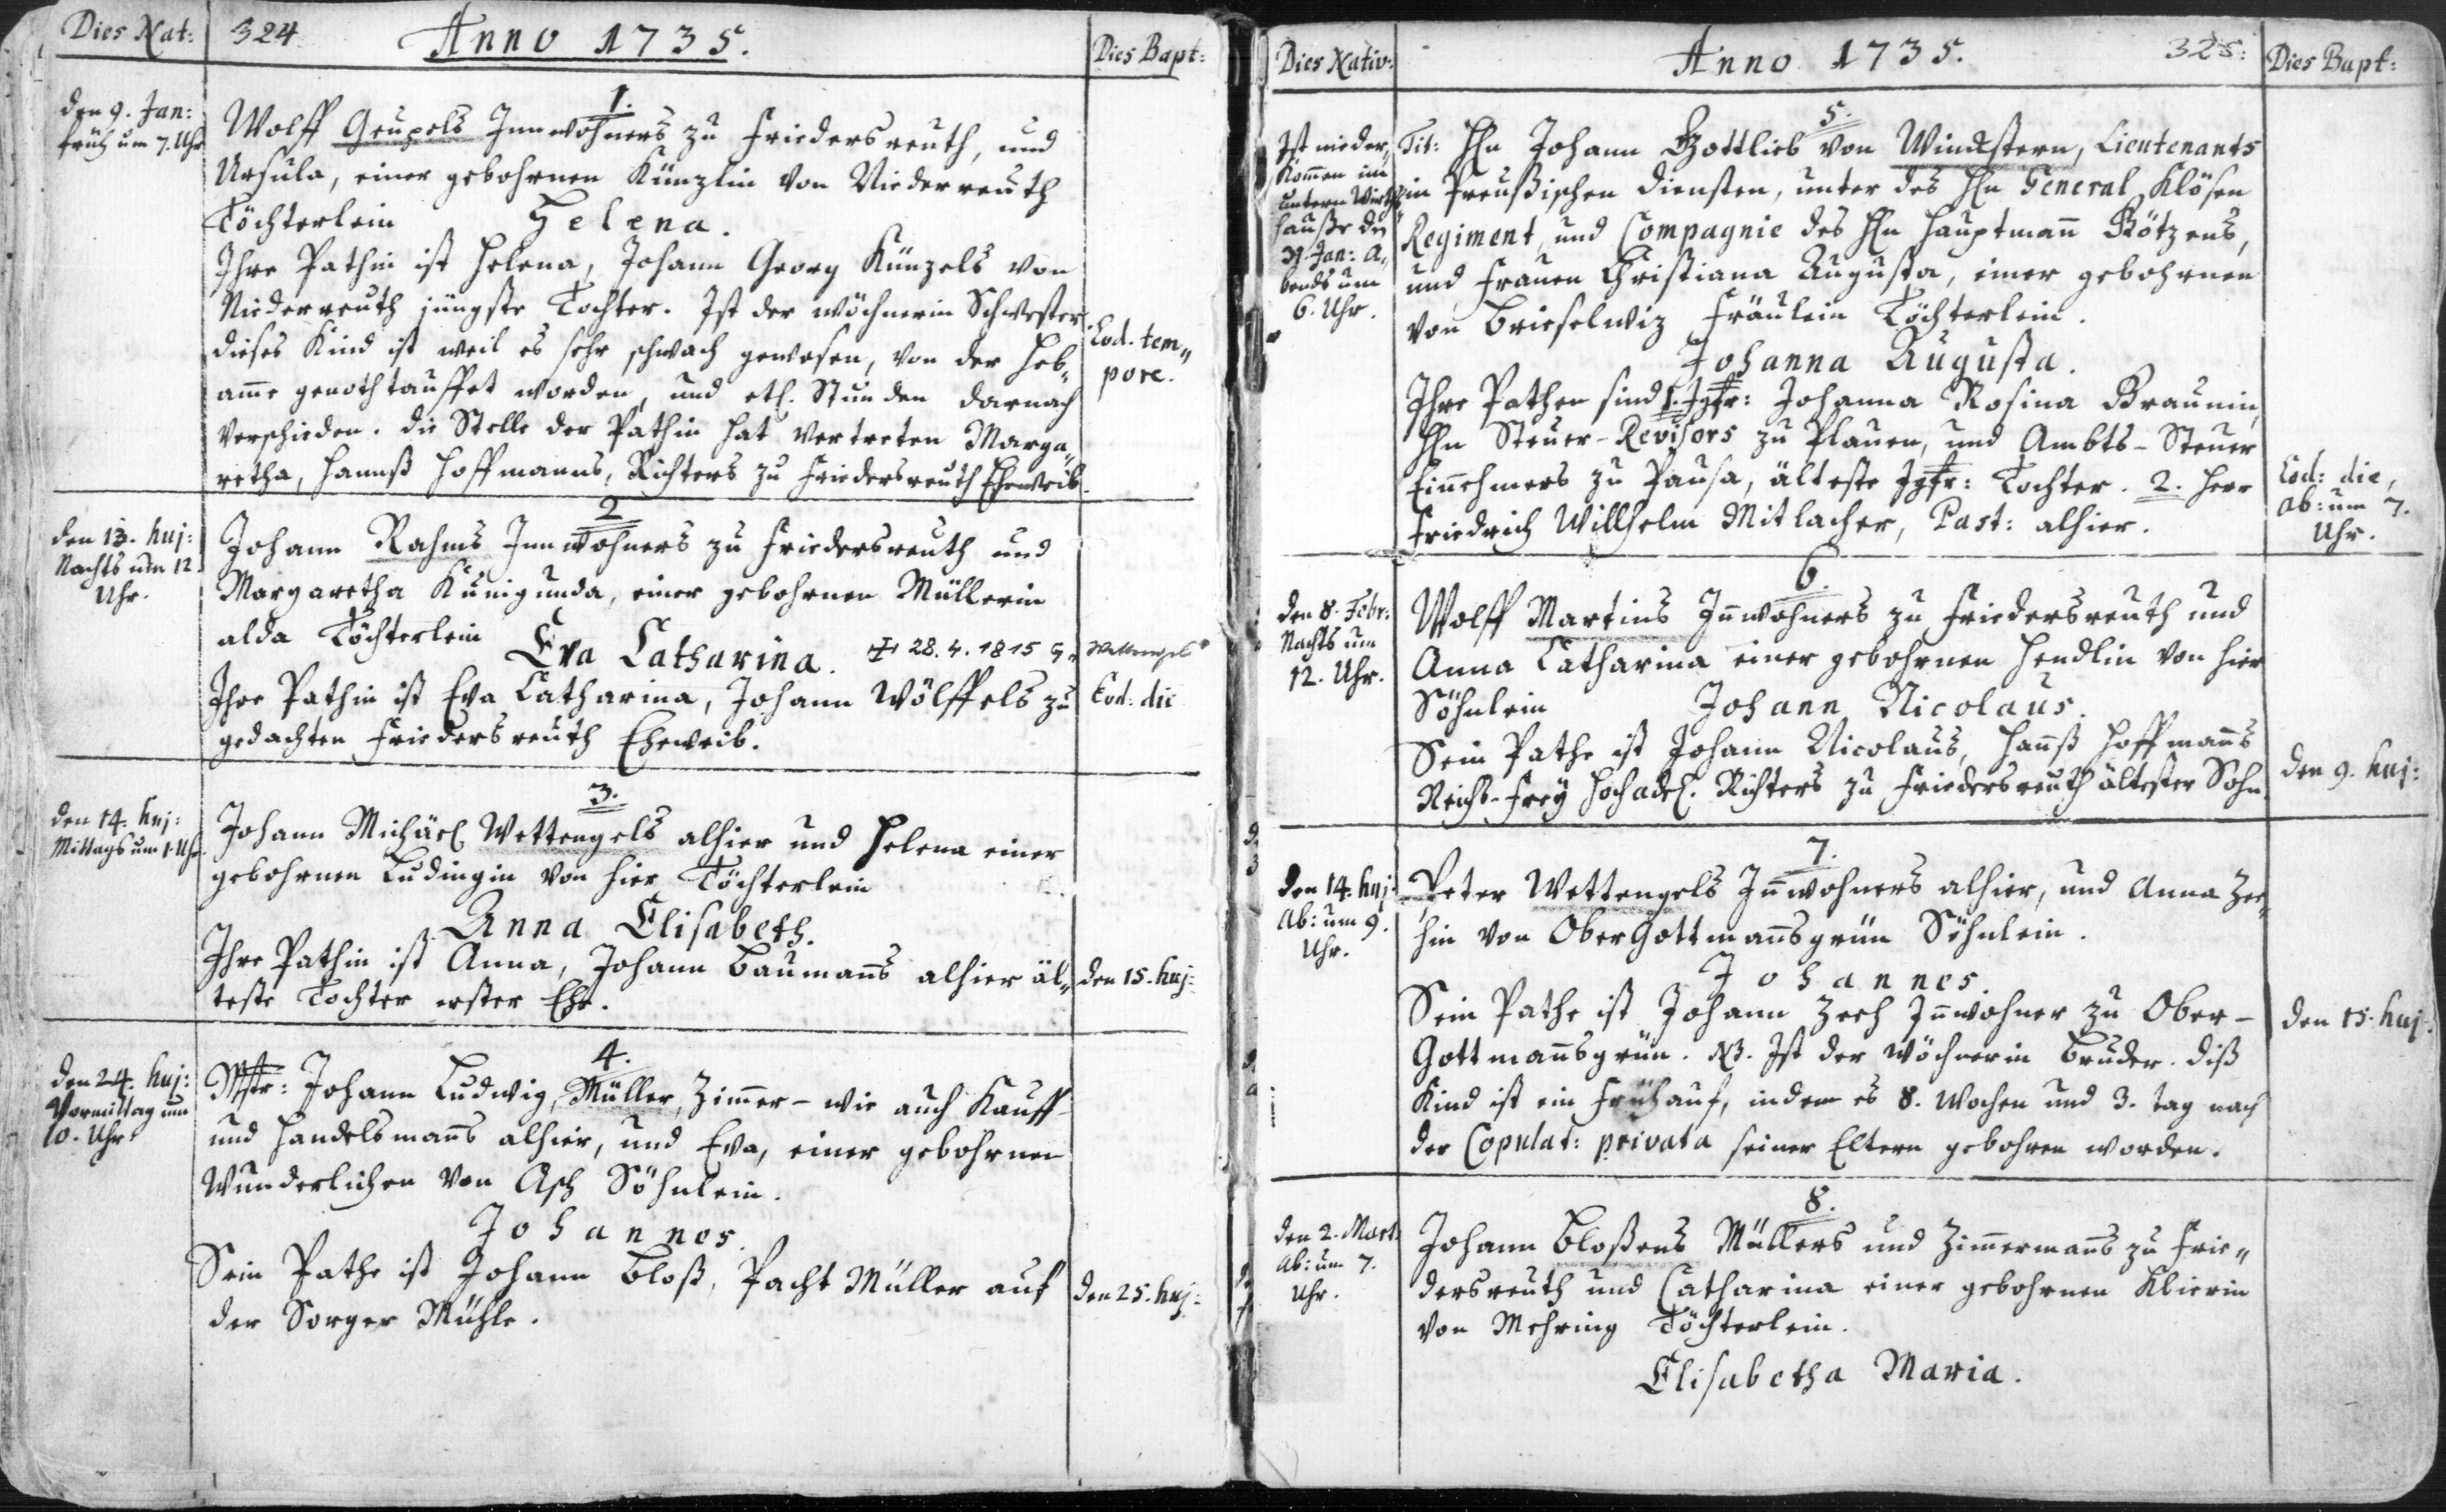 Dies Nat: 324. Anno 1735. Dies Bapt:
1.
den 9. Jan:
früh um 7. Uhr
Wolff Geupels Innwohners zu Friedersreuth, und
Ursula, einer gebohrnen Künzlin von Niederreuth
Töchterlein Helena.
Ihre Pathin ist Helena, Johann Georg Künzels von
Niederreuth jüngste Tochter. Ist der wöchnerin Schwester.
dieses Kind ist weil es sehr schwach gewesen, von der Heb„
amme genothtauffet worden, und etl. Stunden darnach
verschieden. die Stelle der Pathin hat vertreten Marga„
retha, Hannß Hoffmanns, Richters zu Friedersreuth Eheweib.
Eod. tem„
pore.
2
den 13. huj:
Nachts um 12
Uhr.
Johann Rahms Innwohners zu Friedersreuth und
Margaretha Kunigunda, einer gebohrnen Müllerin
alda Töchterlein
Eva Catharina. 28. 4. 1815 Wettengels
Ihre Pathin ist Eva Catharina, Johann Wölffels zu
gedachten Friedersreuth Eheweib.
Eod: die
3.
den 14. huj:
Mittags um 1. Uhr.
Johann Michäel Wettengels alhier und Helena einer
gebohrnen Ludingin von hier Töchterlein
Anna Elisabeth.
Ihre Pathin ist Anna, Johann Baumanns alhier äl„
teste Tochter erster Ehe.
den 15. huj:
4.
den 24. huj:
Vormittag um
10. Uhr
Mstr: Johann Ludwig Müller, Zimmer- wie auch Kauff-
und Handelsmanns alhier, und Eva, einer gebohrnen
Wunderlichen von Asch Söhnlein.
Johannes.
Sein Pathe ist Johann Bloß, Pacht Müller auf
der Sorger Mühle.
den 25. huj:
Dies Nativ: Anno 1735. 325: Dies Bapt:
5.
Ist nieder„
kommen im
untern Wirths„
hauße den
31. Jan: A„
bends um
6. Uhr.
Tit: Hln Johann Gottlieb von Windstern, Lieutenants
in Preußischen diensten, unter des Hln General Klösen
Regiment, und Compagnie des Hln Hauptmann Götzens,
und Frauen Christiana Augusta, einer gebohrnen
von Brieselwiz Fräulein Töchterlein.
Johanna Augusta.
Ihre Pathen sind 1. Jgfr: Johanna Rosina Braunin,
Hln Steuer-Revisors zu Plauen, und Ambts-Steuer
Einnehmers zu Pausa, älteste Jgfr: Tochter. 2. Herr
Friedrich Willhelm Mitlacher, Past: alhier.
Eod: die,
ab: um 7.
Uhr.
6.
den 8. Febr:
Nachts um
12. Uhr.
Wolff Martins Innwohners zu Friedersreuth und
Anna Catharina einer gebohrnen Hendlin von hier
Söhnlein Johann Nicolaus.
Sein Pathe ist Johann Nicolaus, Hannß Hoffmanns
Reichs-Frey Hochadel. Richters zu Friedersreuth ältester Sohn
den 9. huj:
7.
den 14. huj
Ab: um 9.
Uhr.
Peter Wettengels Innwohners alhier, und Anna Ze„
hin von OberGottmannsgrün Söhnlein.
Johannes.
Sein Pathe ist Johann Zeh Innwohner zu Ober-
Gottmannsgrün. NB. Ist der wöchnerin Bruder. diß
Kind ist ein Frühauf, indem es 8. Wochen und 3. tag nach
der Copulat: privata seiner Eltern gebohren worden.
den 15. huj.
8.
den 2. Mart:
Ab: um 7.
Uhr.
Johann Bloßens Müllers und Zimmermanns zu Frie„
dersreuth und Catharina einer gebohrnen Klierin
von Mehring Töchterlein.
Elisabetha Maria.